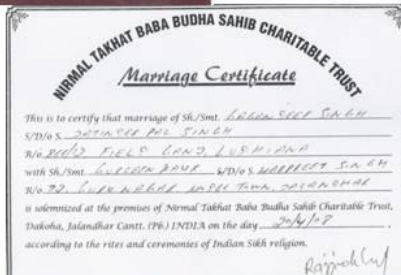 NIRMAL TAKHAT BABA BUDHA SAHIB CHARITABLE TRUST
Marriage Certificate
This is to certify that marriage of Sh./Smt. GAGANDEEP SINGH
S/D/o S. JATINDER PAL SINGH
R/o FIELD GANJ, LUDHIANA
with Sh./Smt. GURLEEN KAUR S/D/o S. HARPREET SINGH
R/o 72, GURU NAGAR MODEL TOWN, JALANDHAR
is solemnized at the premises of Nirmal Takhat Baba Budha Sahib Charitable Trust,
Dakoha, Jalandhar Cantt. (Pb.) INDIA on the day 20/4/08,
according to the rites and ceremonies of Indian Sikh religion.